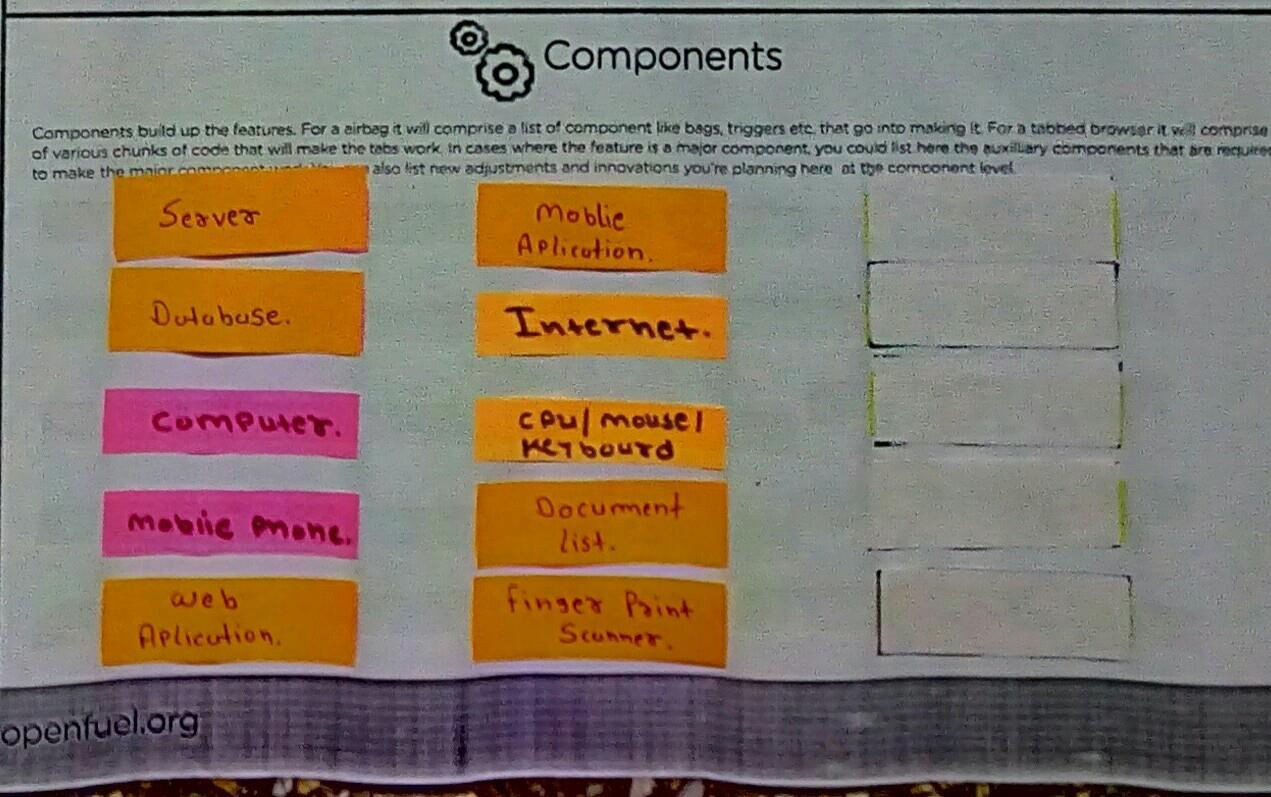 Components
Components build up the features. For a airbag it will comprise a list of component like bags, triggers etc, that go into making it. For a tabbed browser it will comprise
of various chunks of code that will make the tabs work. In cases where the feature is a major component, you could list here the auxilliary components that are require
to make the major component also list new adjustments and innovations you're planning here at the component level.
Server
Database.
Computer.
Moblie Phone.
Web
Aplication.
Moblie
Aplication.
Internet.
CPU/Mouse/
Keyboard
Document
List.
Finger Print
Scanner.
openfuel.org